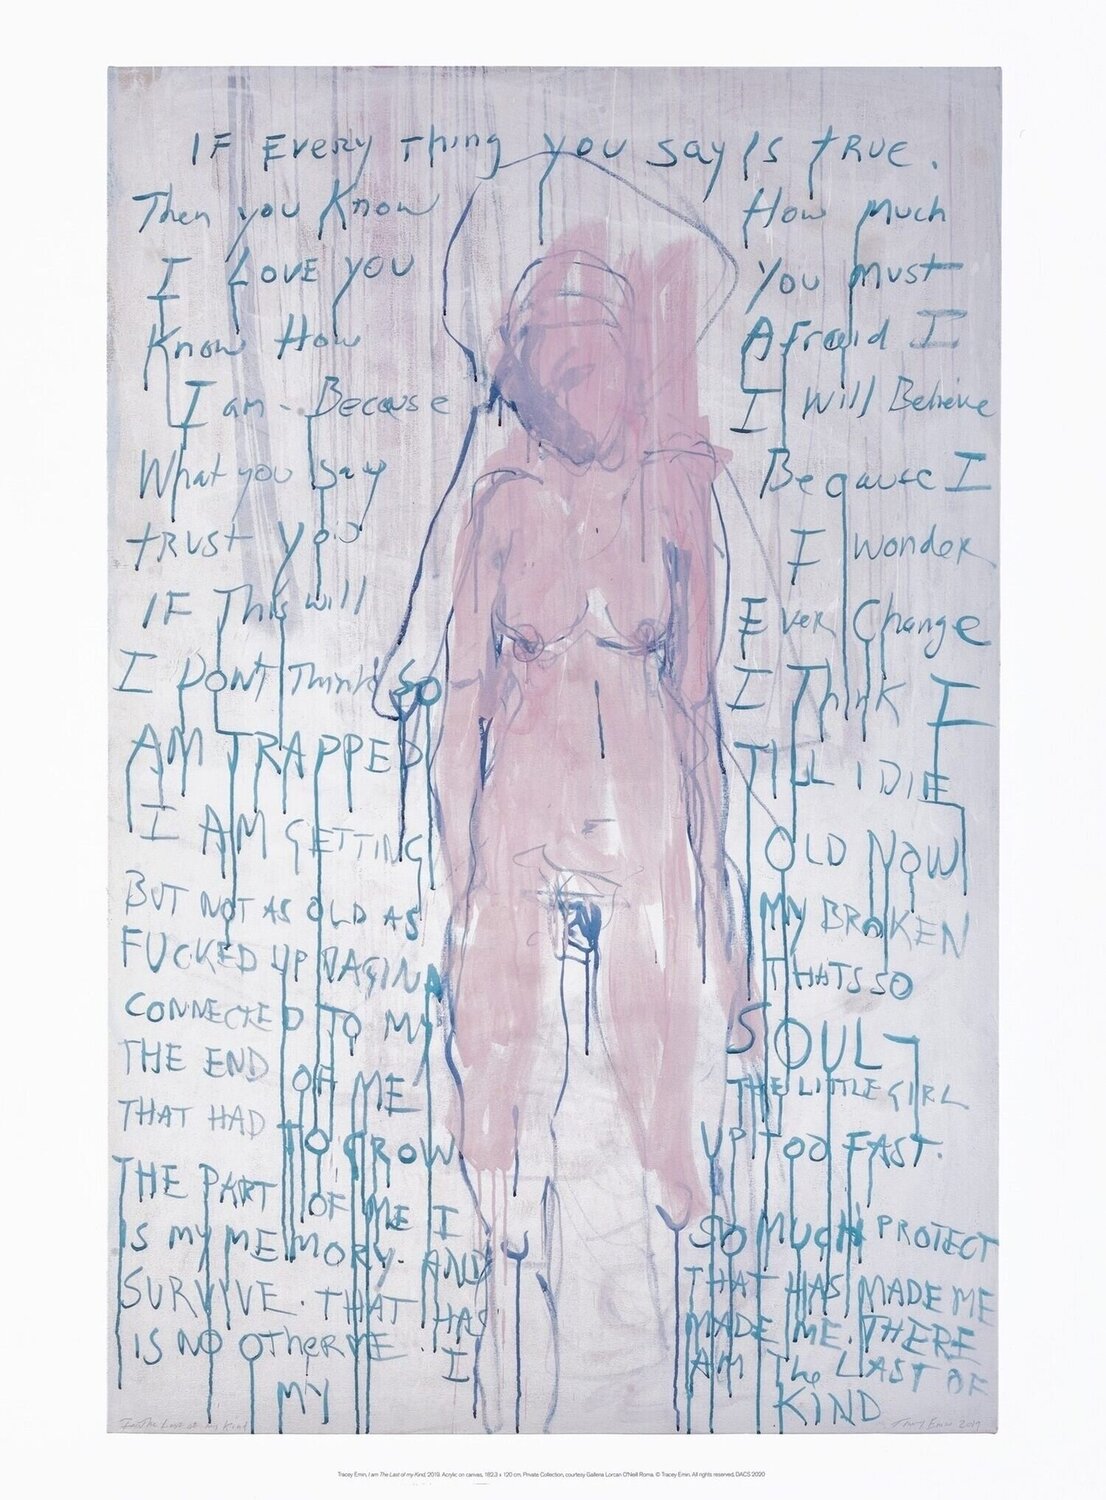 IF Every Thing you say Is tRUE.
Then you Know How Much
I LOVE YOU You must
Know How Afraid I
I am - Because I Will Believe
What you say Because I
tRUST you I wonder
IF This will Ever Change
I DONT Think So I Think I
AM TRAPPED TILL I DIE
I AM GETTING OLD NOW
BUT NOT AS OLD AS MY BROKEN
FUCKED UP VAGINA THATS SO
CONNECTED TO MY SOUL
THE END OF ME THE LITTLE GIRL
THAT HAD TO GROW UP TOO FAST.
THE PART OF ME I SO MUCH PROTECT
IS MY MEMORY. AND THAT HAS MADE ME
SURVIVE. THAT HAS MADE ME. THERE
IS NO OTHER ME. I AM The LAST OF
MY KIND
I am The Last of my Kind Tracey Emin 2019
Tracey Emin, I am The Last of my Kind, 2019. Acrylic on canvas, 182.3 x 120 cm. Private Collection, courtesy Galleria Lorcan O'Neill Roma. © Tracey Emin. All rights reserved, DACS 2020